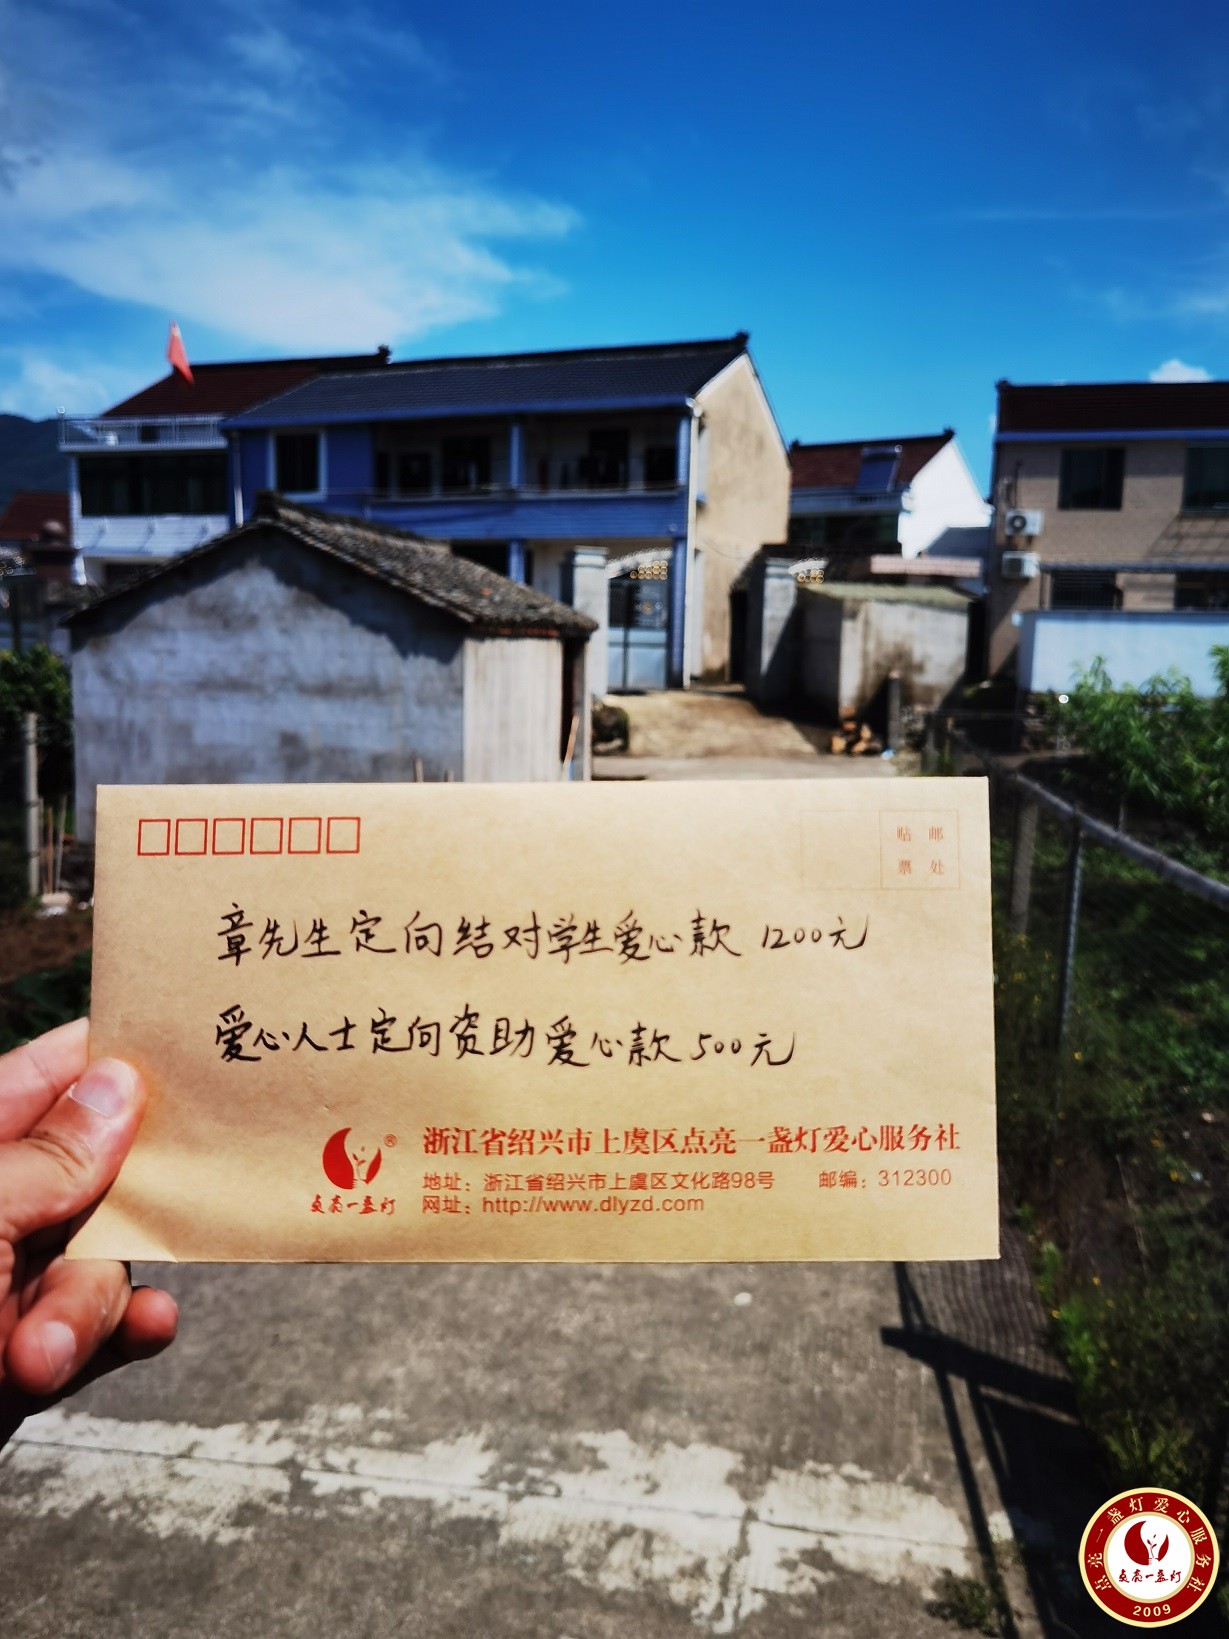 贴 邮
票 处
章先生定向结对学生爱心款 1200元
爱心人士定向资助爱心款 500元
®
点亮一盏灯
浙江省绍兴市上虞区点亮一盏灯爱心服务社
地址：浙江省绍兴市上虞区文化路98号 邮编：312300
网址：http://www.dlyzd.com
点亮一盏灯爱心服务社
点亮一盏灯
2009